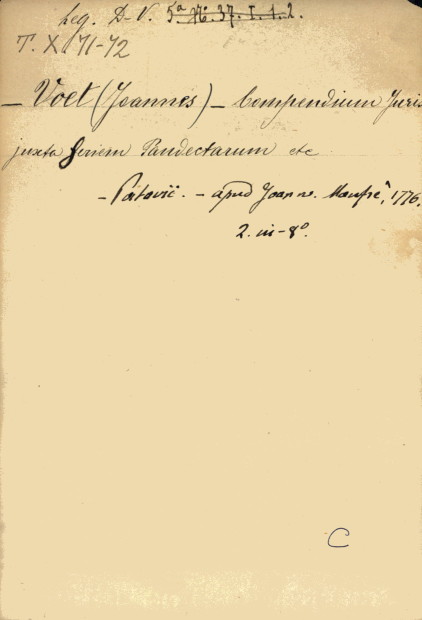 Leg. D-V. 5ª N. 37. I. 1. 2.
T. X 71-72
— Voet (Joannes) — Compendium Juris
juxta seriem Pandectarum etc
— Patavii. — apud Joann. Manfrè, 1776.
2. in-8º.
C